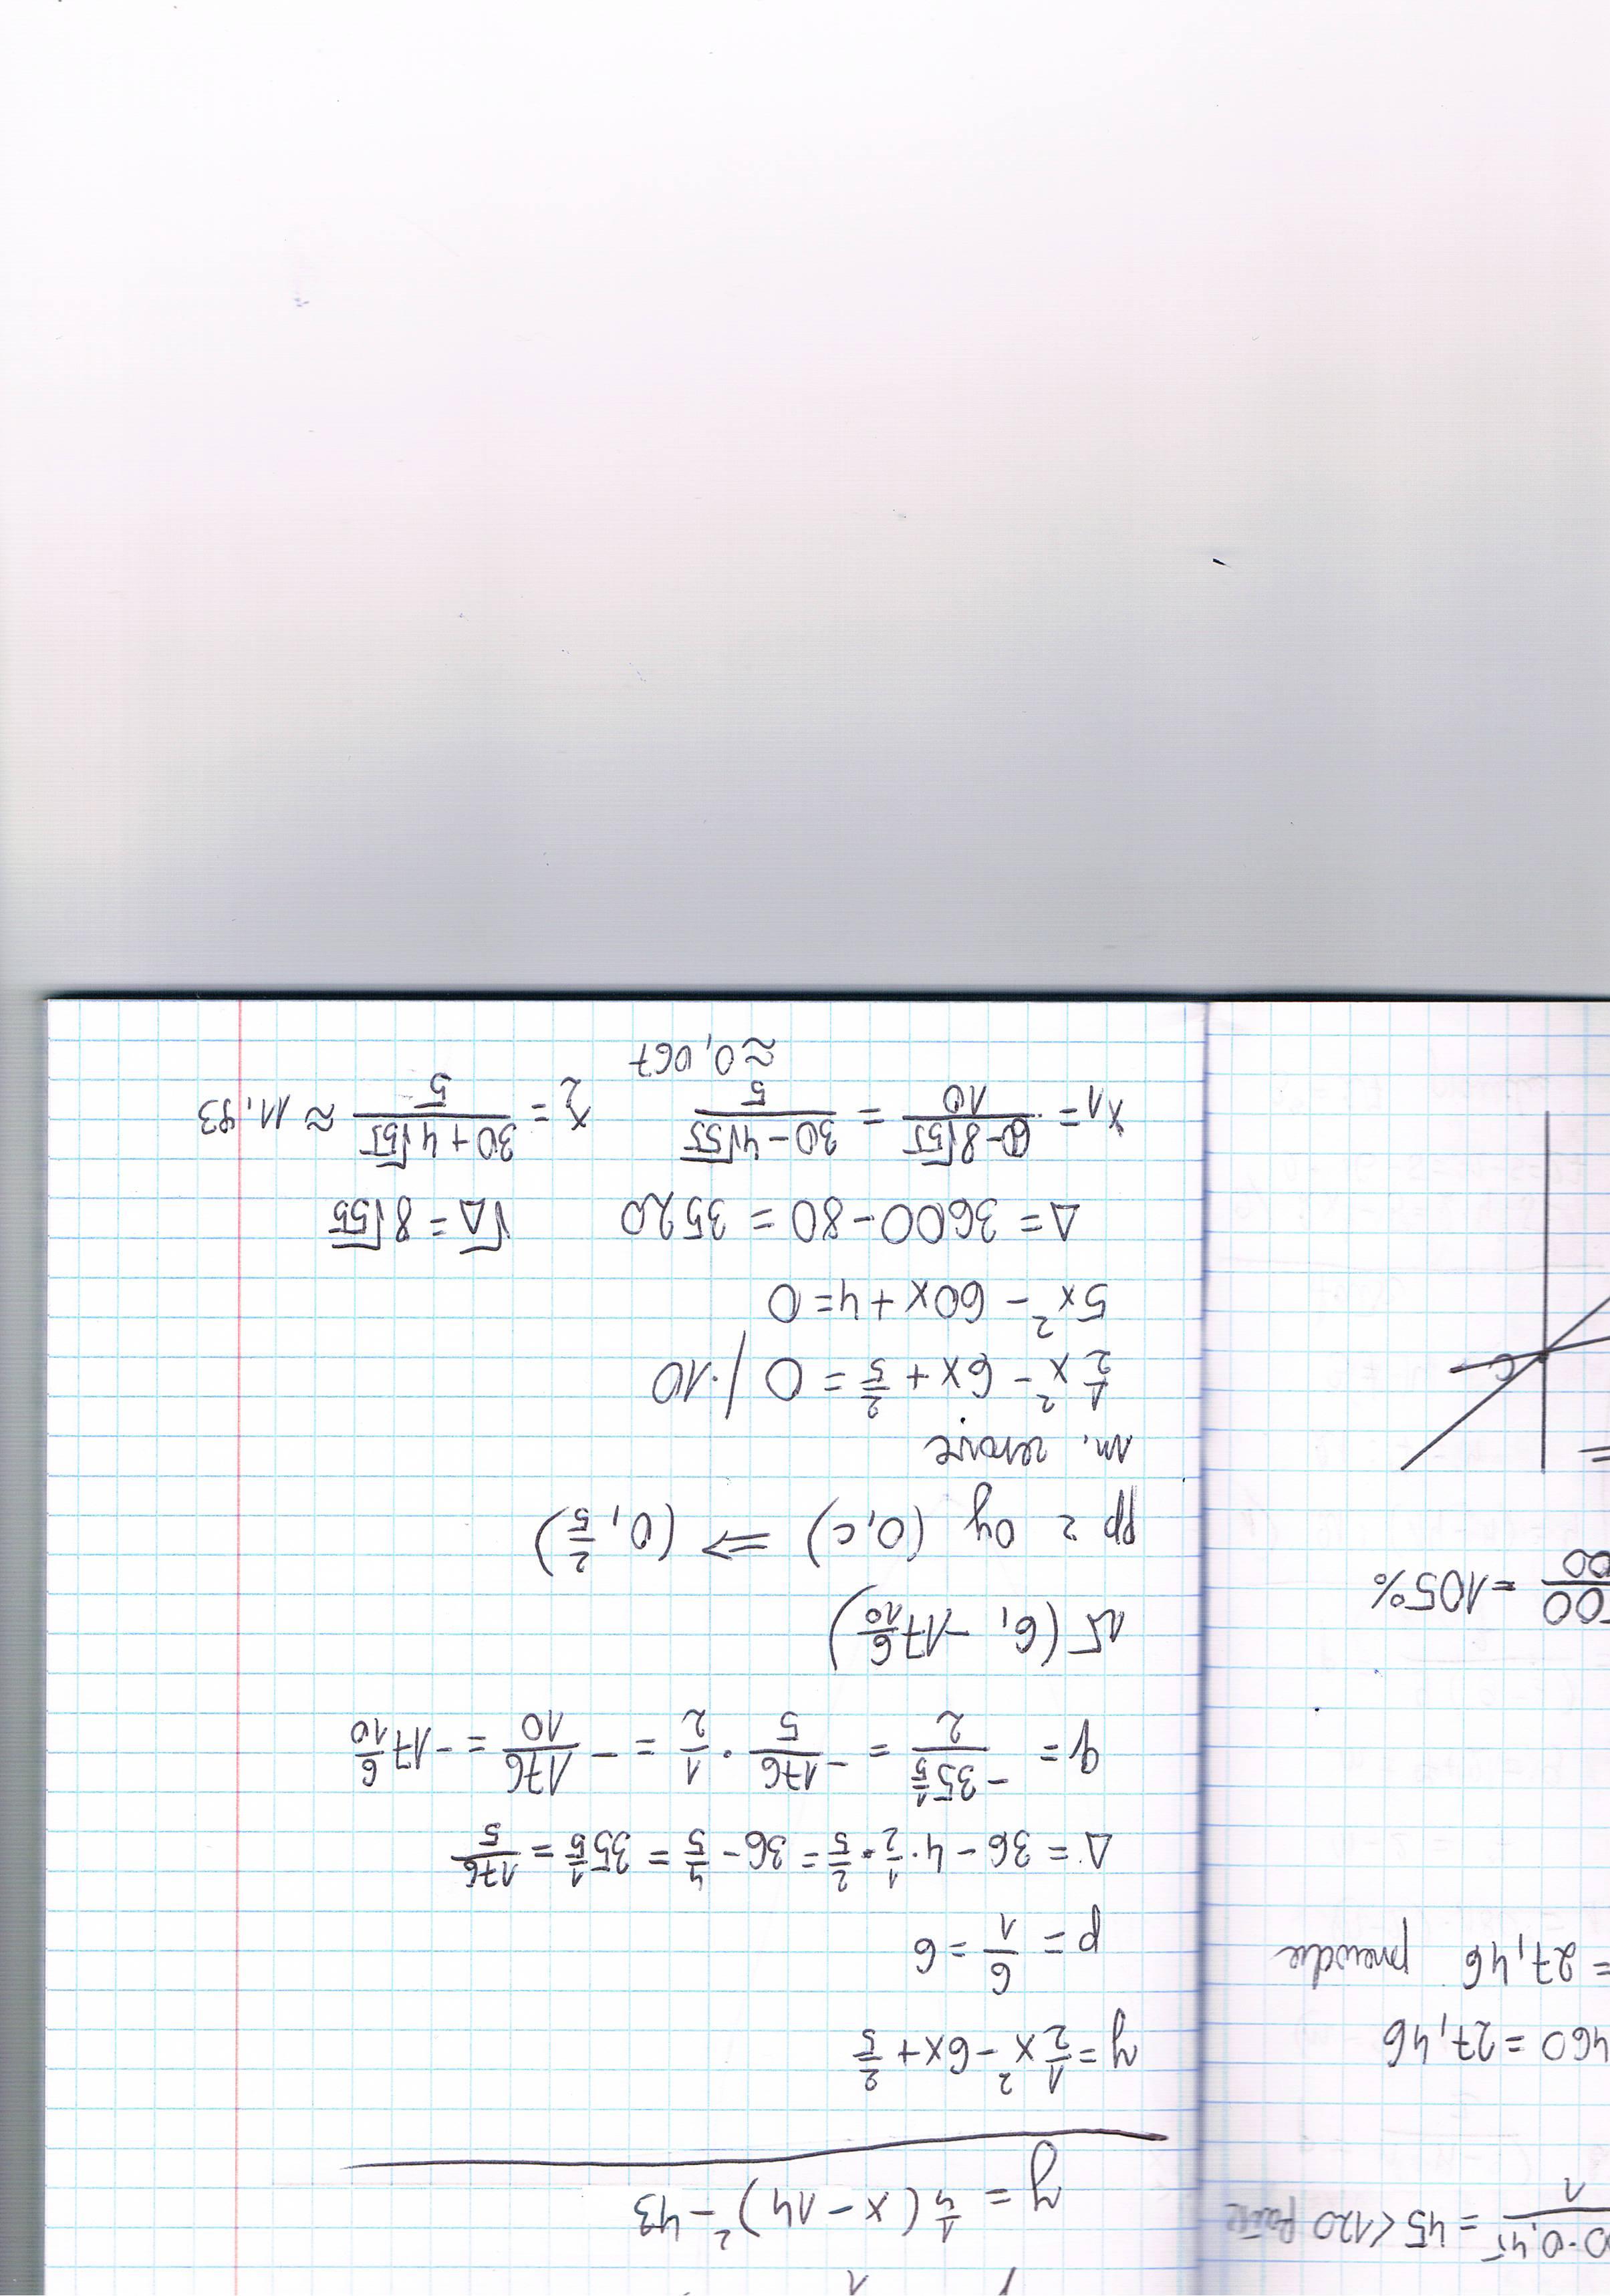 y = 1/4 (x - 14)² - 43
y = 1/2 x² - 6x + 2/5
p = 6/1 = 6
Δ = 36 - 4 · 1/2 · 2/5 = 36 - 4/5 = 35 1/5 = 176/5
q = (-35 1/5)/2 = -176/5 · 1/2 = -176/10 = -17 6/10
W (6, -17 6/10)
pp z oy (0, c) ⇒ (0, 2/5)
m. zerowe
1/2 x² - 6x + 2/5 = 0 /·10
5x² - 60x + 4 = 0
Δ = 3600 - 80 = 3520 √Δ = 8√55
x1 = (60 - 8√55)/10 = (30 - 4√55)/5 x2 = (30 + 4√55)/5 ≈ 11,93
≈ 0,067
0,45/1 = 45 < 120
460 = 27,46
= 27,46 prawda
= 105%
C